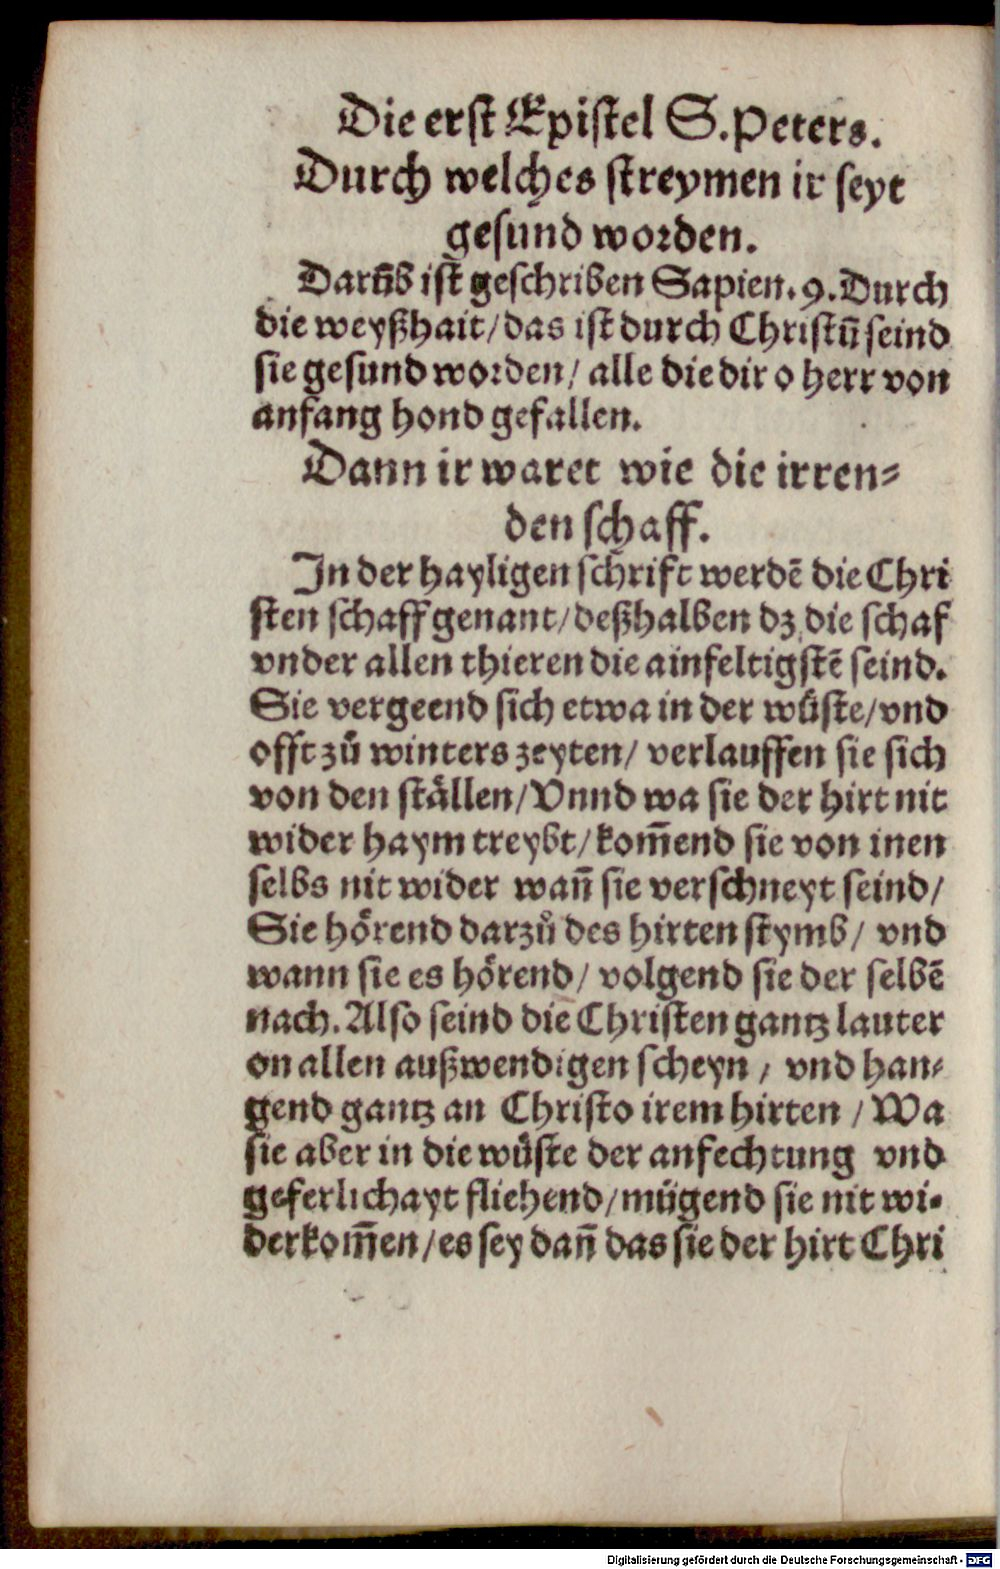 Die erst Epistel S. Peters.
Durch welches streymen ir seyt
gesund worden.
Darũb ist geschriben Sapien. 9. Durch
die weyßhait / das ist durch Christũ seind
sie gesund worden / alle die dir o herr von
anfang hond gefallen.
Dann ir waret wie die irren⸗
den schaff.
In der hayligen schrift werdẽ die Chri
sten schaff genant / deßhalben dz die schaf
vnder allen thieren die ainfeltigstẽ seind.
Sie vergeend sich etwa in der wůste / vnd
offt zů winters zeyten / verlauffen sie sich
von den ställen / Vnnd wa sie der hirt nit
wider haym treybt / kom̃end sie von inen
selbs nit wider wañ sie verschneyt seind /
Sie hörend darzů des hirten stymb / vnd
wann sie es hörend / volgend sie der selbẽ
nach. Also seind die Christen gantz lauter
on allen außwendigen scheyn / vnd han⸗
gend gantz an Christo irem hirten / Wa
sie aber in die wůste der anfechtung vnd
geferlichayt fliehend / mügend sie nit wi⸗
derkom̃en / es sey dañ das sie der hirt Chri
Digitalisierung gefördert durch die Deutsche Forschungsgemeinschaft - DFG